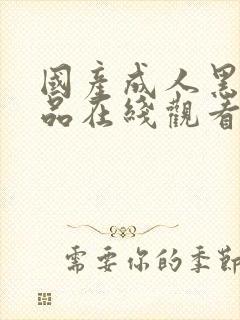 國產成人黑
品在綫觀看
需要你的季節